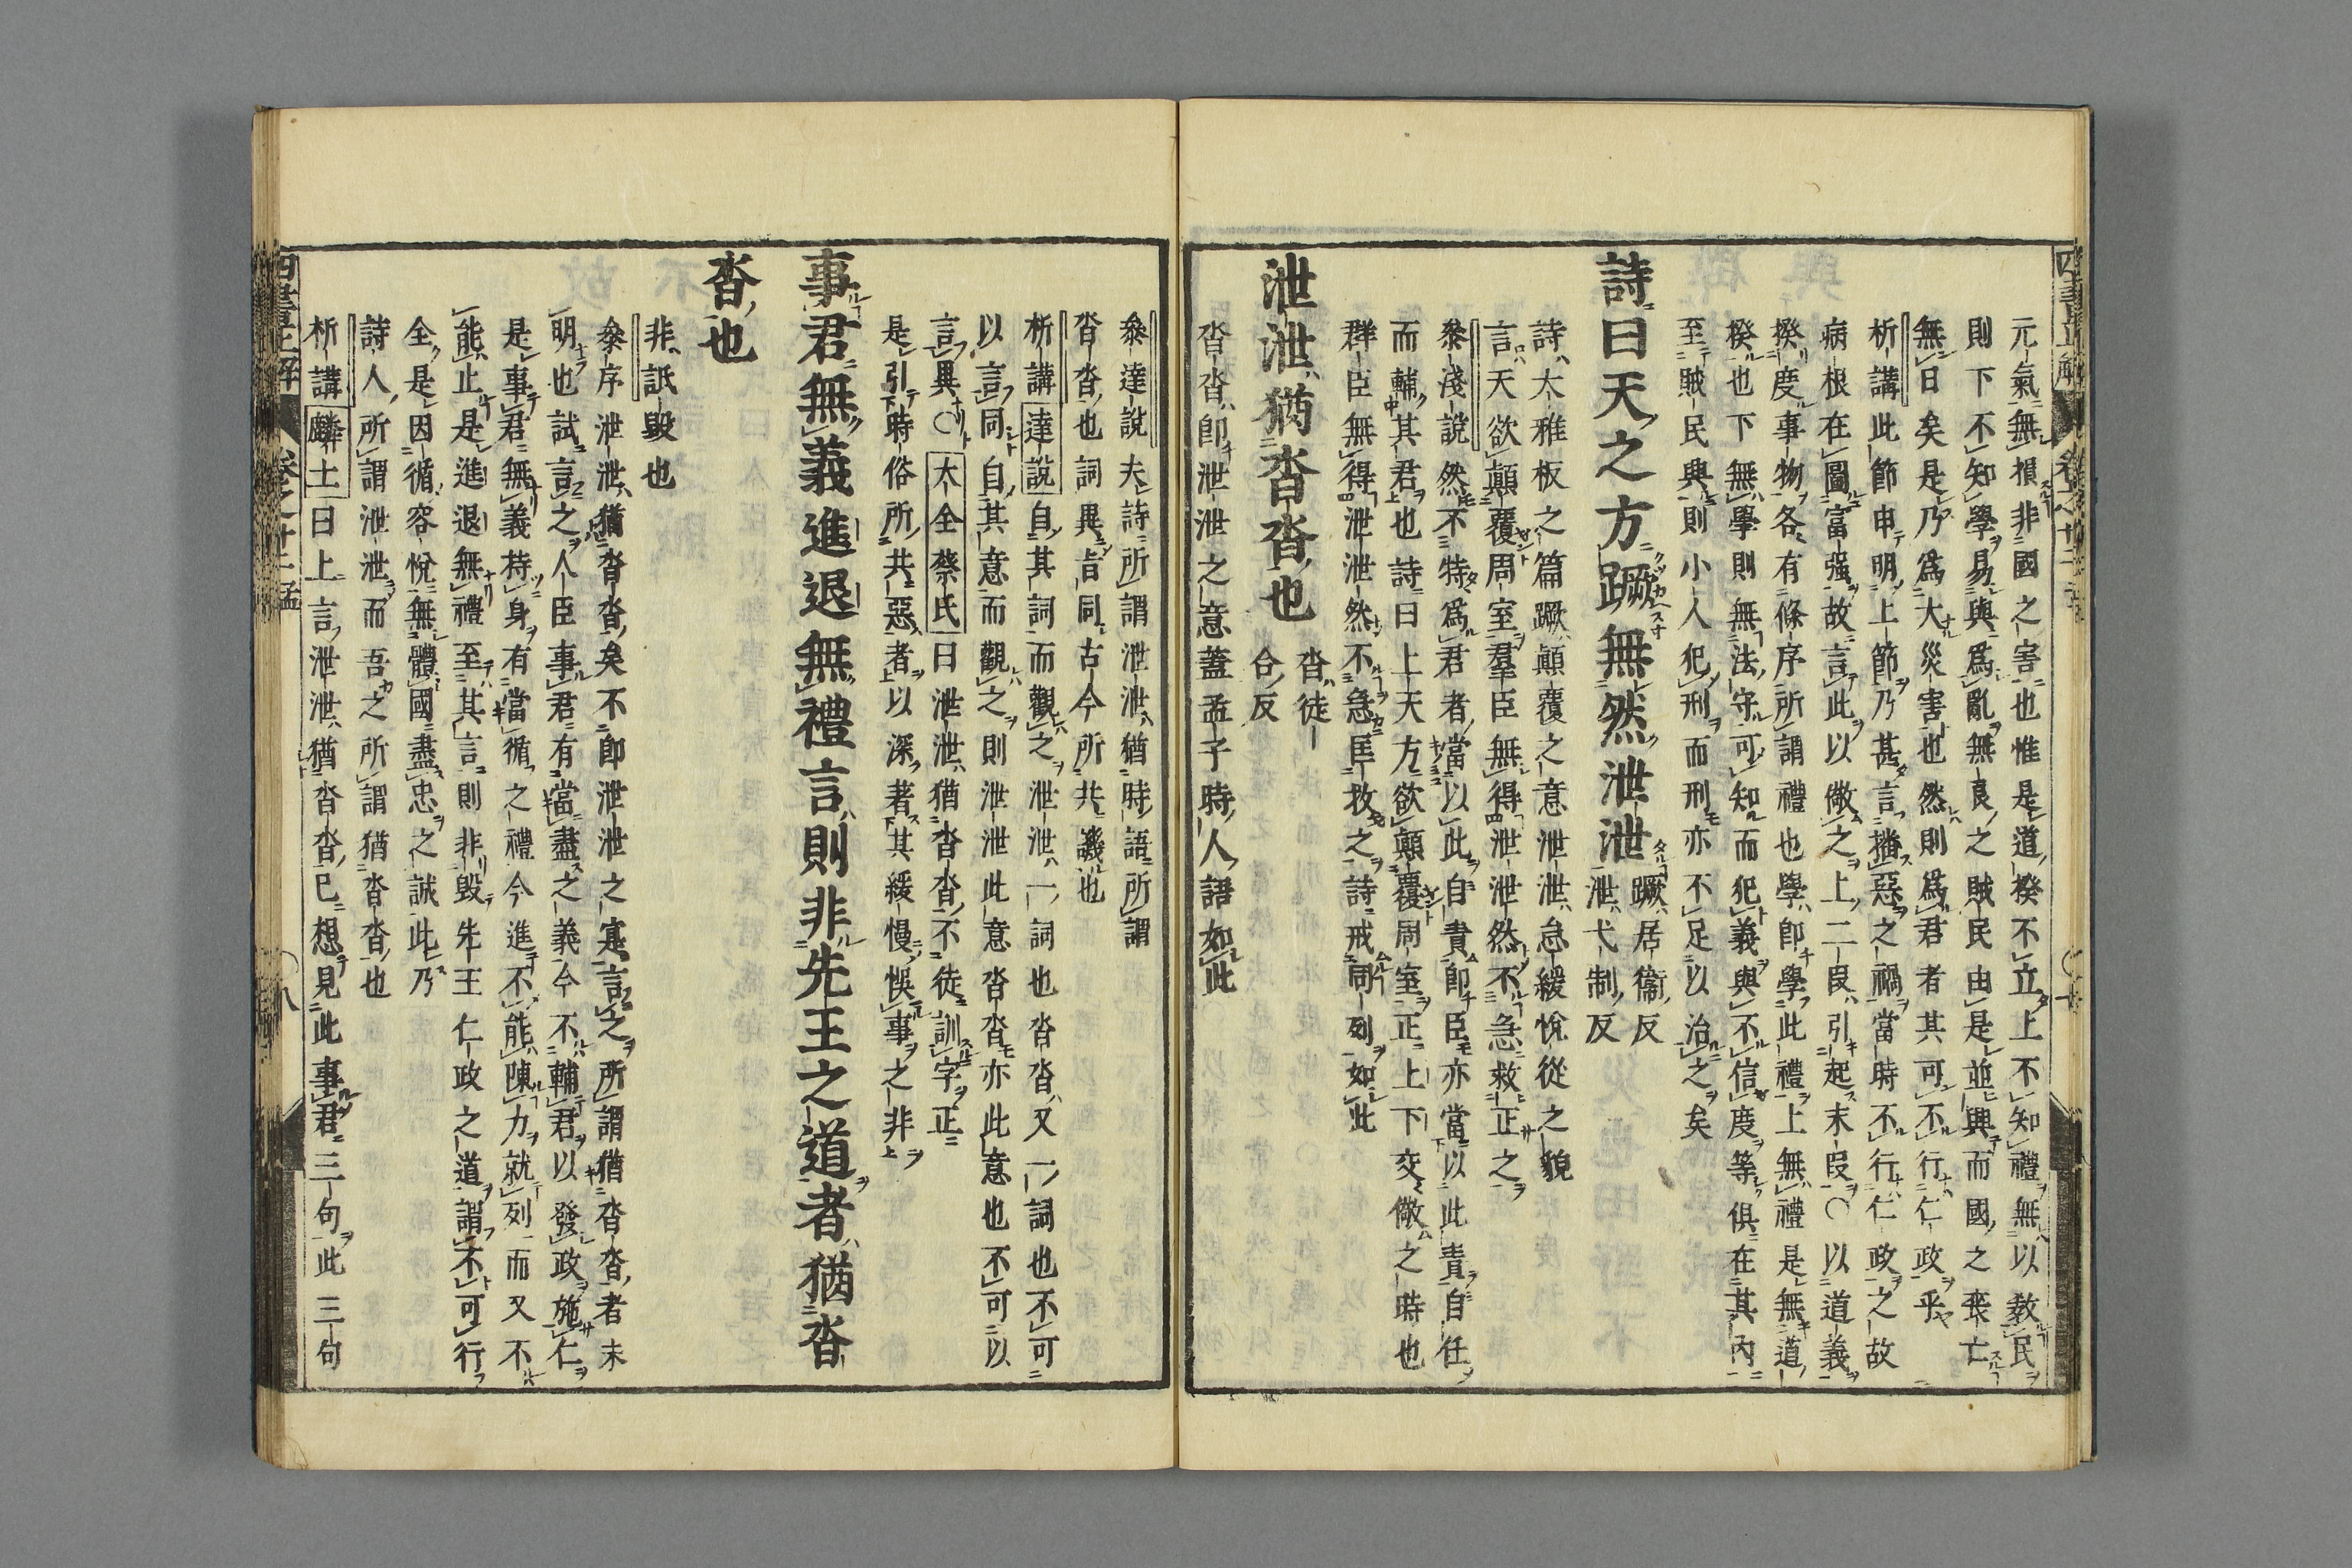 元氣無損非國之害也惟是道揆不立上不知禮無以教民
則下不知學易與爲亂無良之賊民由是並興而國之喪亡
無日矣是乃爲大災害也然則爲君者其可不行仁政乎
析講此節申明上節乃甚言播惡之禍當時不行仁政之故
病根在圖富强故言此以儆之上二段引起末段○以道義
揆度事物各有條序所謂禮也學即學此禮上無禮是無道
揆也下無學則無法守可知而犯義與不信度等俱在其內
至賊民興則小人犯刑而刑亦不足以治之矣
詩曰天之方蹶無然泄泄
蹶居衞反
泄弋制反
詩大雅板之篇蹶顚覆之意泄泄怠緩悅從之貌
言天欲顚覆周室羣臣無得泄泄然不急救正之
叅淺說然不特爲君者當以此自責即臣亦當以此責自任
而輔其君也詩曰上天方欲顚覆周室正上下交儆之時也
群臣無得泄泄然不急匡救之詩戒同列如此
泄泄猶沓沓也
沓徒
合反
沓沓即泄泄之意蓋孟子時人語如此
叅達說夫詩所謂泄泄猶時語所謂
沓沓也詞異旨同古今所共譏也
析講達說自其詞而觀之泄泄一詞也沓沓又一詞也不可
以言同自其意而觀之則泄泄此意沓沓亦此意也不可以
言異○大全蔡氏曰泄泄猶沓沓不徒訓字正
是引時俗所共惡者以深著其緩慢悞事之非
事君無義進退無禮言則非先王之道者猶沓
沓也
非詆毀也
叅序泄泄猶沓沓矣不即泄泄之寔言之所謂猶沓沓者未
明也試言之人臣事君有當盡之義今不輔君以發政施仁
是事君無義持身有當循之禮今進不能陳力就列而又不
能止是進退無禮至其言則非毀先王仁政之道謂不可行
全是因循容悅無體國盡忠之誠此乃
詩人所謂泄泄而吾之所謂猶沓沓也
析講麟士曰上言泄泄猶沓沓已想見此事君三句此三句